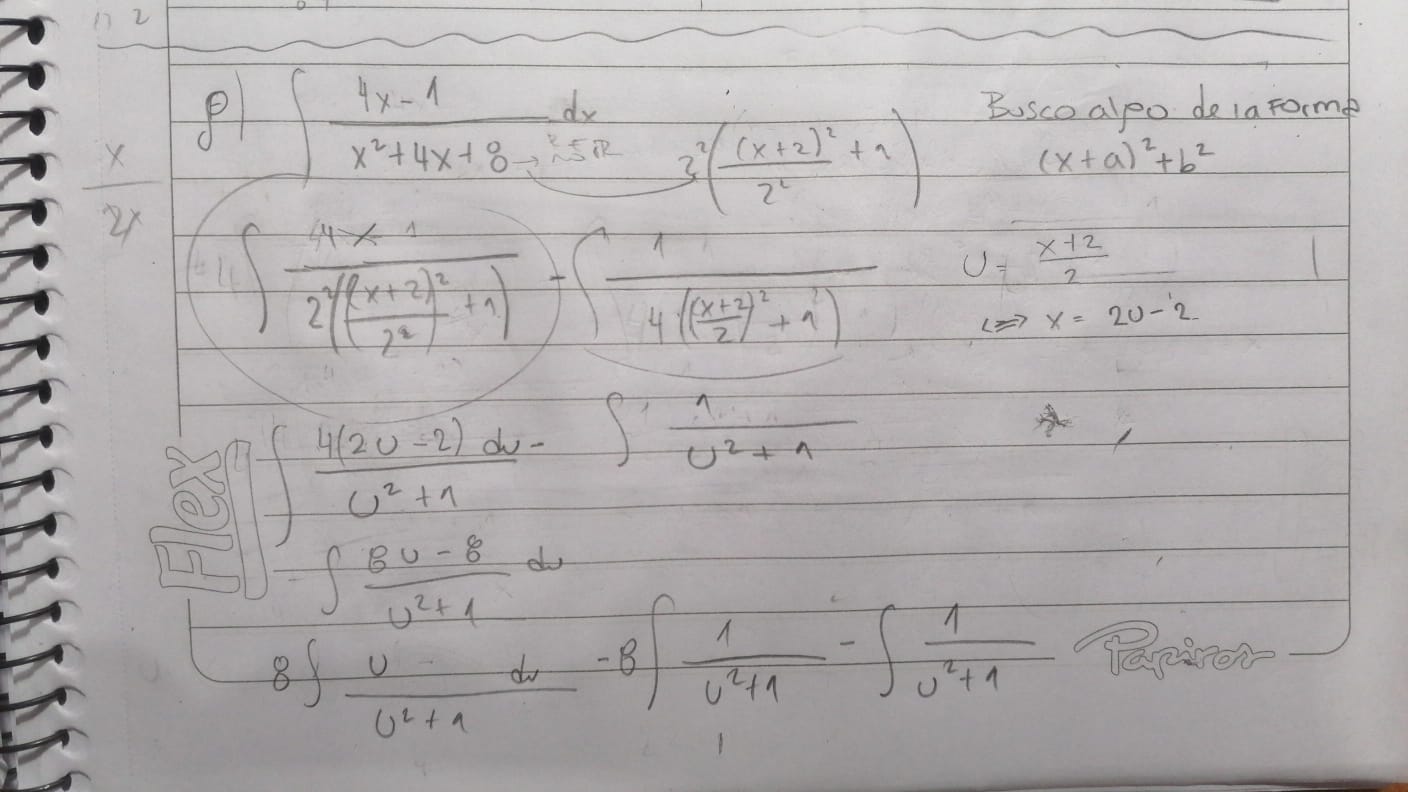 f) ∫ (4x-1)/(x²+4x+8) dx → 2²((x+2)²/2² + 1)
Busco algo de la Forma
(x+a)²+b²
x/2x
∫ 4x/(2²((x+2)²/2² + 1)) - ∫ 1/(4((x+2)/2)² + 1²)
U = (x+2)/2
<=> x = 2U-2
∫ 4(2U-2) du/(U²+1) - ∫ 1/(U²+1)
∫ (8U-8)/(U²+1) du
8∫ U du/(U²+1) -8∫ 1/(U²+1) - ∫ 1/(U²+1)
Flex
Papiros